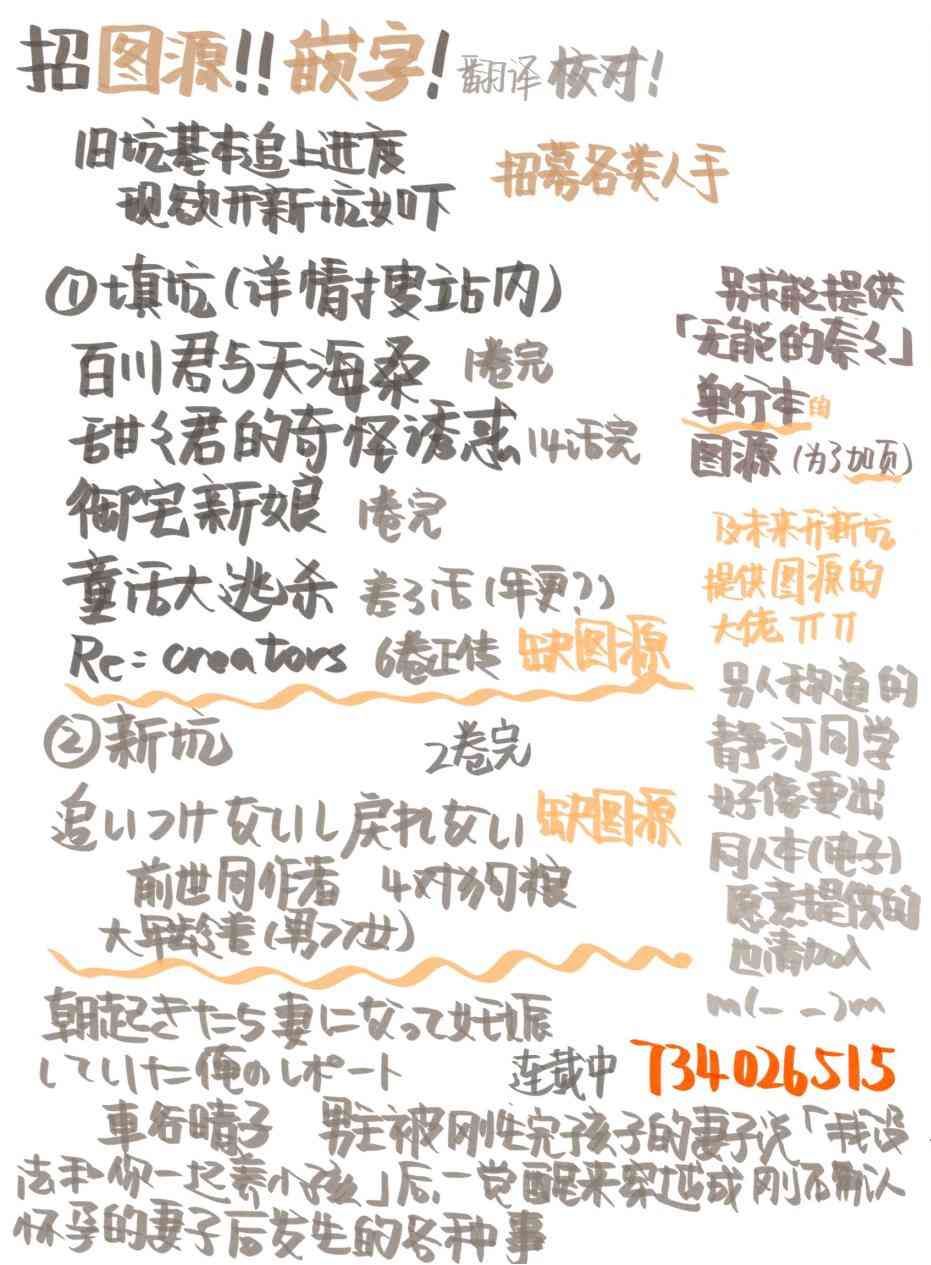 招图源!!嵌字!翻译校对!
旧坑基本追上进度
现欲开新坑如下
招募各类人手
①填坑(详情搜站内)
百川君与天海桑 1卷完
甜々君的奇怪诱惑 14话完
御宅新娘 1卷完
童话大逃杀 差3话(年更?)
Re:creators 6卷正传 缺图源
②新坑 2卷完
追いつけないし戻れない 缺图源
前世同作者 4对狗粮
大年龄差(男>女)
朝起きたら妻になって妊娠
していた俺のレポート 连载中 734026515
車谷晴子 男主被刚生完孩子的妻子说「我没
法和你一起养小孩」后,一觉醒来穿越成刚不确认
怀孕的妻子后发生的各种事
另求能提供
「无能的奈々」
单行本的
图源(为了加页)
及未来开新坑
提供图源的
大佬ㄒㄒ
另人称道的
静河同学
好像要出
同人本(电子)
愿意提供的
也请加入
m(_ _)m